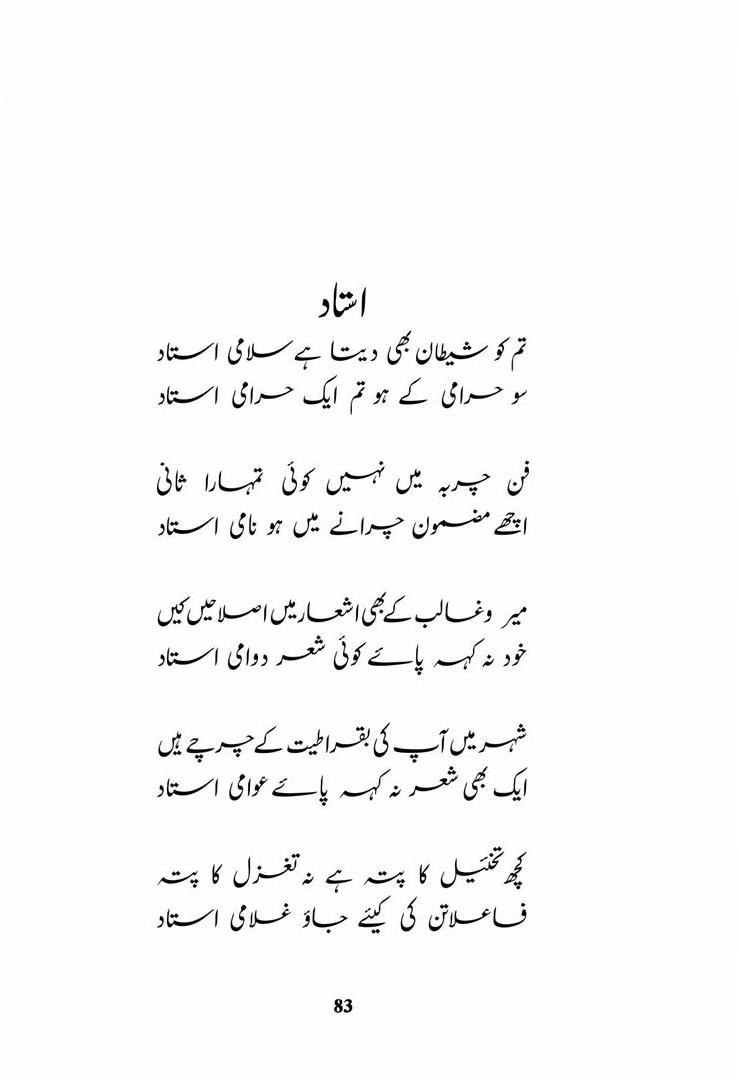 استاد
تم کو شیطان بھی دیتا ہے سلامی استاد
سو حرامی کے ہو تم ایک حرامی استاد
فن چربہ میں نہیں کوئی تمہارا ثانی
اچھے مضمون چرانے میں ہو نامی استاد
میر وغالب کے بھی اشعار میں اصلاحیں کیں
خود نہ کہہ پائے کوئی شعر دوامی استاد
شہر میں آپ کی بقراطیت کے چرچے ہیں
ایک بھی شعر نہ کہہ پائے عوامی استاد
کچھ تخئیل کا پتہ ہے نہ تغزل کا پتہ
فاعلاتن کی کیئے جاؤ غلامی استاد
83